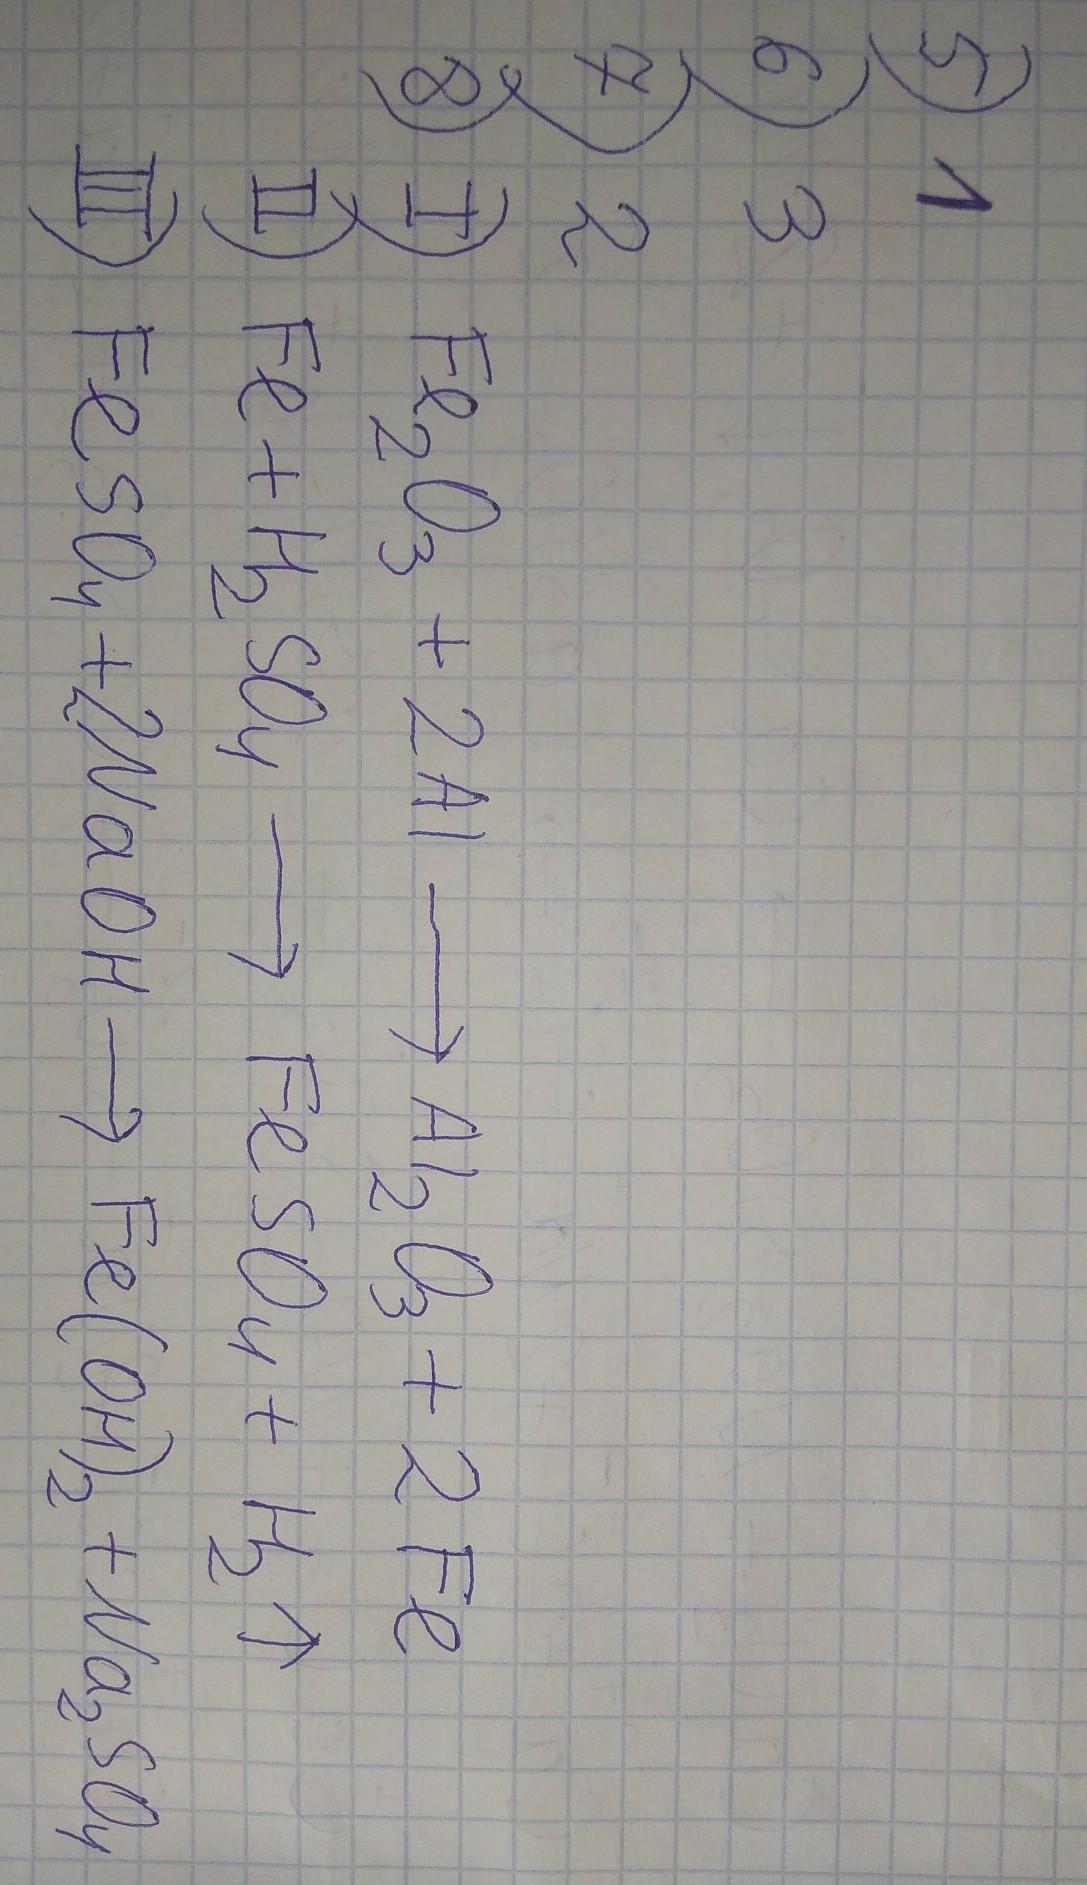 5) 1
6) 3
7) 2
8) I) Fe₂O₃ + 2Al → Al₂O₃ + 2Fe
II) Fe + H₂SO₄ → FeSO₄ + H₂↑
III) FeSO₄ + 2NaOH → Fe(OH)₂ + Na₂SO₄